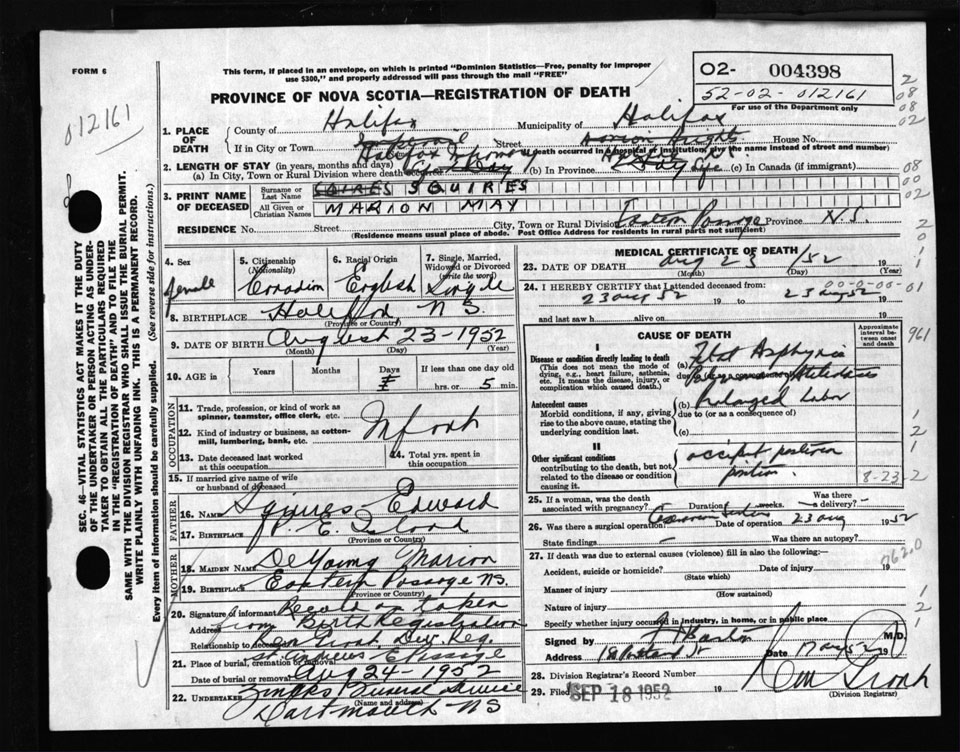 FORM 6
This form, if placed in an envelope, on which is printed "Dominion Statistics—Free, penalty for improper
use $300," and properly addressed will pass through the mail "FREE"
O2- 004398
52-02-012161
For use of the Department only
PROVINCE OF NOVA SCOTIA—REGISTRATION OF DEATH
012161
1. PLACE OF DEATH
County of Halifax Municipality of Halifax
If in City or Town Street House No.
(If death occurred in a hospital or institution, give the name instead of street and number)
2. LENGTH OF STAY (in years, months and days)
(a) In City, Town or Rural Division where death occurred (b) In Province Life (c) In Canada (if immigrant)
3. PRINT NAME OF DECEASED
Surname or Last Name SQUIRES
All Given or Christian Names MARION MAY
RESIDENCE No. Street City, Town or Rural Division Eastern Passage Province N.S.
(Residence means usual place of abode. Post Office Address for residents in rural parts not sufficient)
4. Sex female
5. Citizenship (Nationality) Canadian
6. Racial Origin English
7. Single, Married, Widowed or Divorced (write the word) Single
8. BIRTHPLACE Halifax N S.
(Province or Country)
9. DATE OF BIRTH August 23-1952
(Month) (Day) (Year)
10. AGE in Years Months Days If less than one day old
hrs. or 5 min.
OCCUPATION
11. Trade, profession, or kind of work as spinner, teamster, office clerk, etc.
12. Kind of industry or business, as cotton-mill, lumbering, bank, etc.
13. Date deceased last worked at this occupation
14. Total yrs. spent in this occupation
15. If married give name of wife or husband of deceased
FATHER
16. Name Squires Edward
17. Birthplace P. E. Island
(Province or Country)
MOTHER
18. Maiden Name DeYoung Marion
19. Birthplace Eastern Passage NS.
(Province or Country)
20. Signature of informant taken
Address from Birth Registration
Relationship to deceased Div. Reg.
21. Place of burial, cremation or removal E Passage
Date of burial or removal Aug 24-1952
22. Undertaker Funeral Service
(Name and address)
Dartmouth NS
MEDICAL CERTIFICATE OF DEATH
23. DATE OF DEATH Aug 23/52 19
(Month) (Day) (Year)
24. I HEREBY CERTIFY that I attended deceased from:
23 Aug 52 19 to 23 Aug 52 19
and last saw h alive on 19
CAUSE OF DEATH
Approximate interval between onset and death
I
Disease or condition directly leading to death
(This does not mean the mode of dying, e.g., heart failure, asthenia, etc. It means the disease, injury, or complication which caused death.)
(a) Fetal Asphyxia
due to
Antecedent causes
Morbid conditions, if any, giving rise to the above cause, stating the underlying condition last.
(b) Prolonged labor
due to (or as a consequence of)
(c)
II
Other significant conditions
contributing to the death, but not related to the disease or condition causing it.
occiput posterior
position.
8-23-2
25. If a woman, was the death associated with pregnancy? Duration weeks. Was there delivery?
26. Was there a surgical operation? Date of operation 23 Aug 1952
State findings Was there an autopsy?
27. If death was due to external causes (violence) fill in also the following:—
Accident, suicide or homicide? Date of injury 19
(State which)
Manner of injury
(How sustained)
Nature of injury
Specify whether injury occurred in industry, in home, or in public place
Signed by M.D.
Address Date 19
28. Division Registrar's Record Number
29. Filed SEP 18 1952
(Division Registrar)
SEC. 46—VITAL STATISTICS ACT MAKES IT THE DUTY
OF THE UNDERTAKER OR PERSON ACTING AS UNDER-
TAKER TO OBTAIN ALL THE PARTICULARS REQUIRED
IN THE "REGISTRATION OF DEATH" AND TO FILE THE
SAME WITH THE DIVISION REGISTRAR WHO SHALL ISSUE THE BURIAL PERMIT.
WRITE PLAINLY WITH UNFADING INK. THIS IS A PERMANENT RECORD.
Every item of information should be carefully supplied. (See reverse side for instructions.)